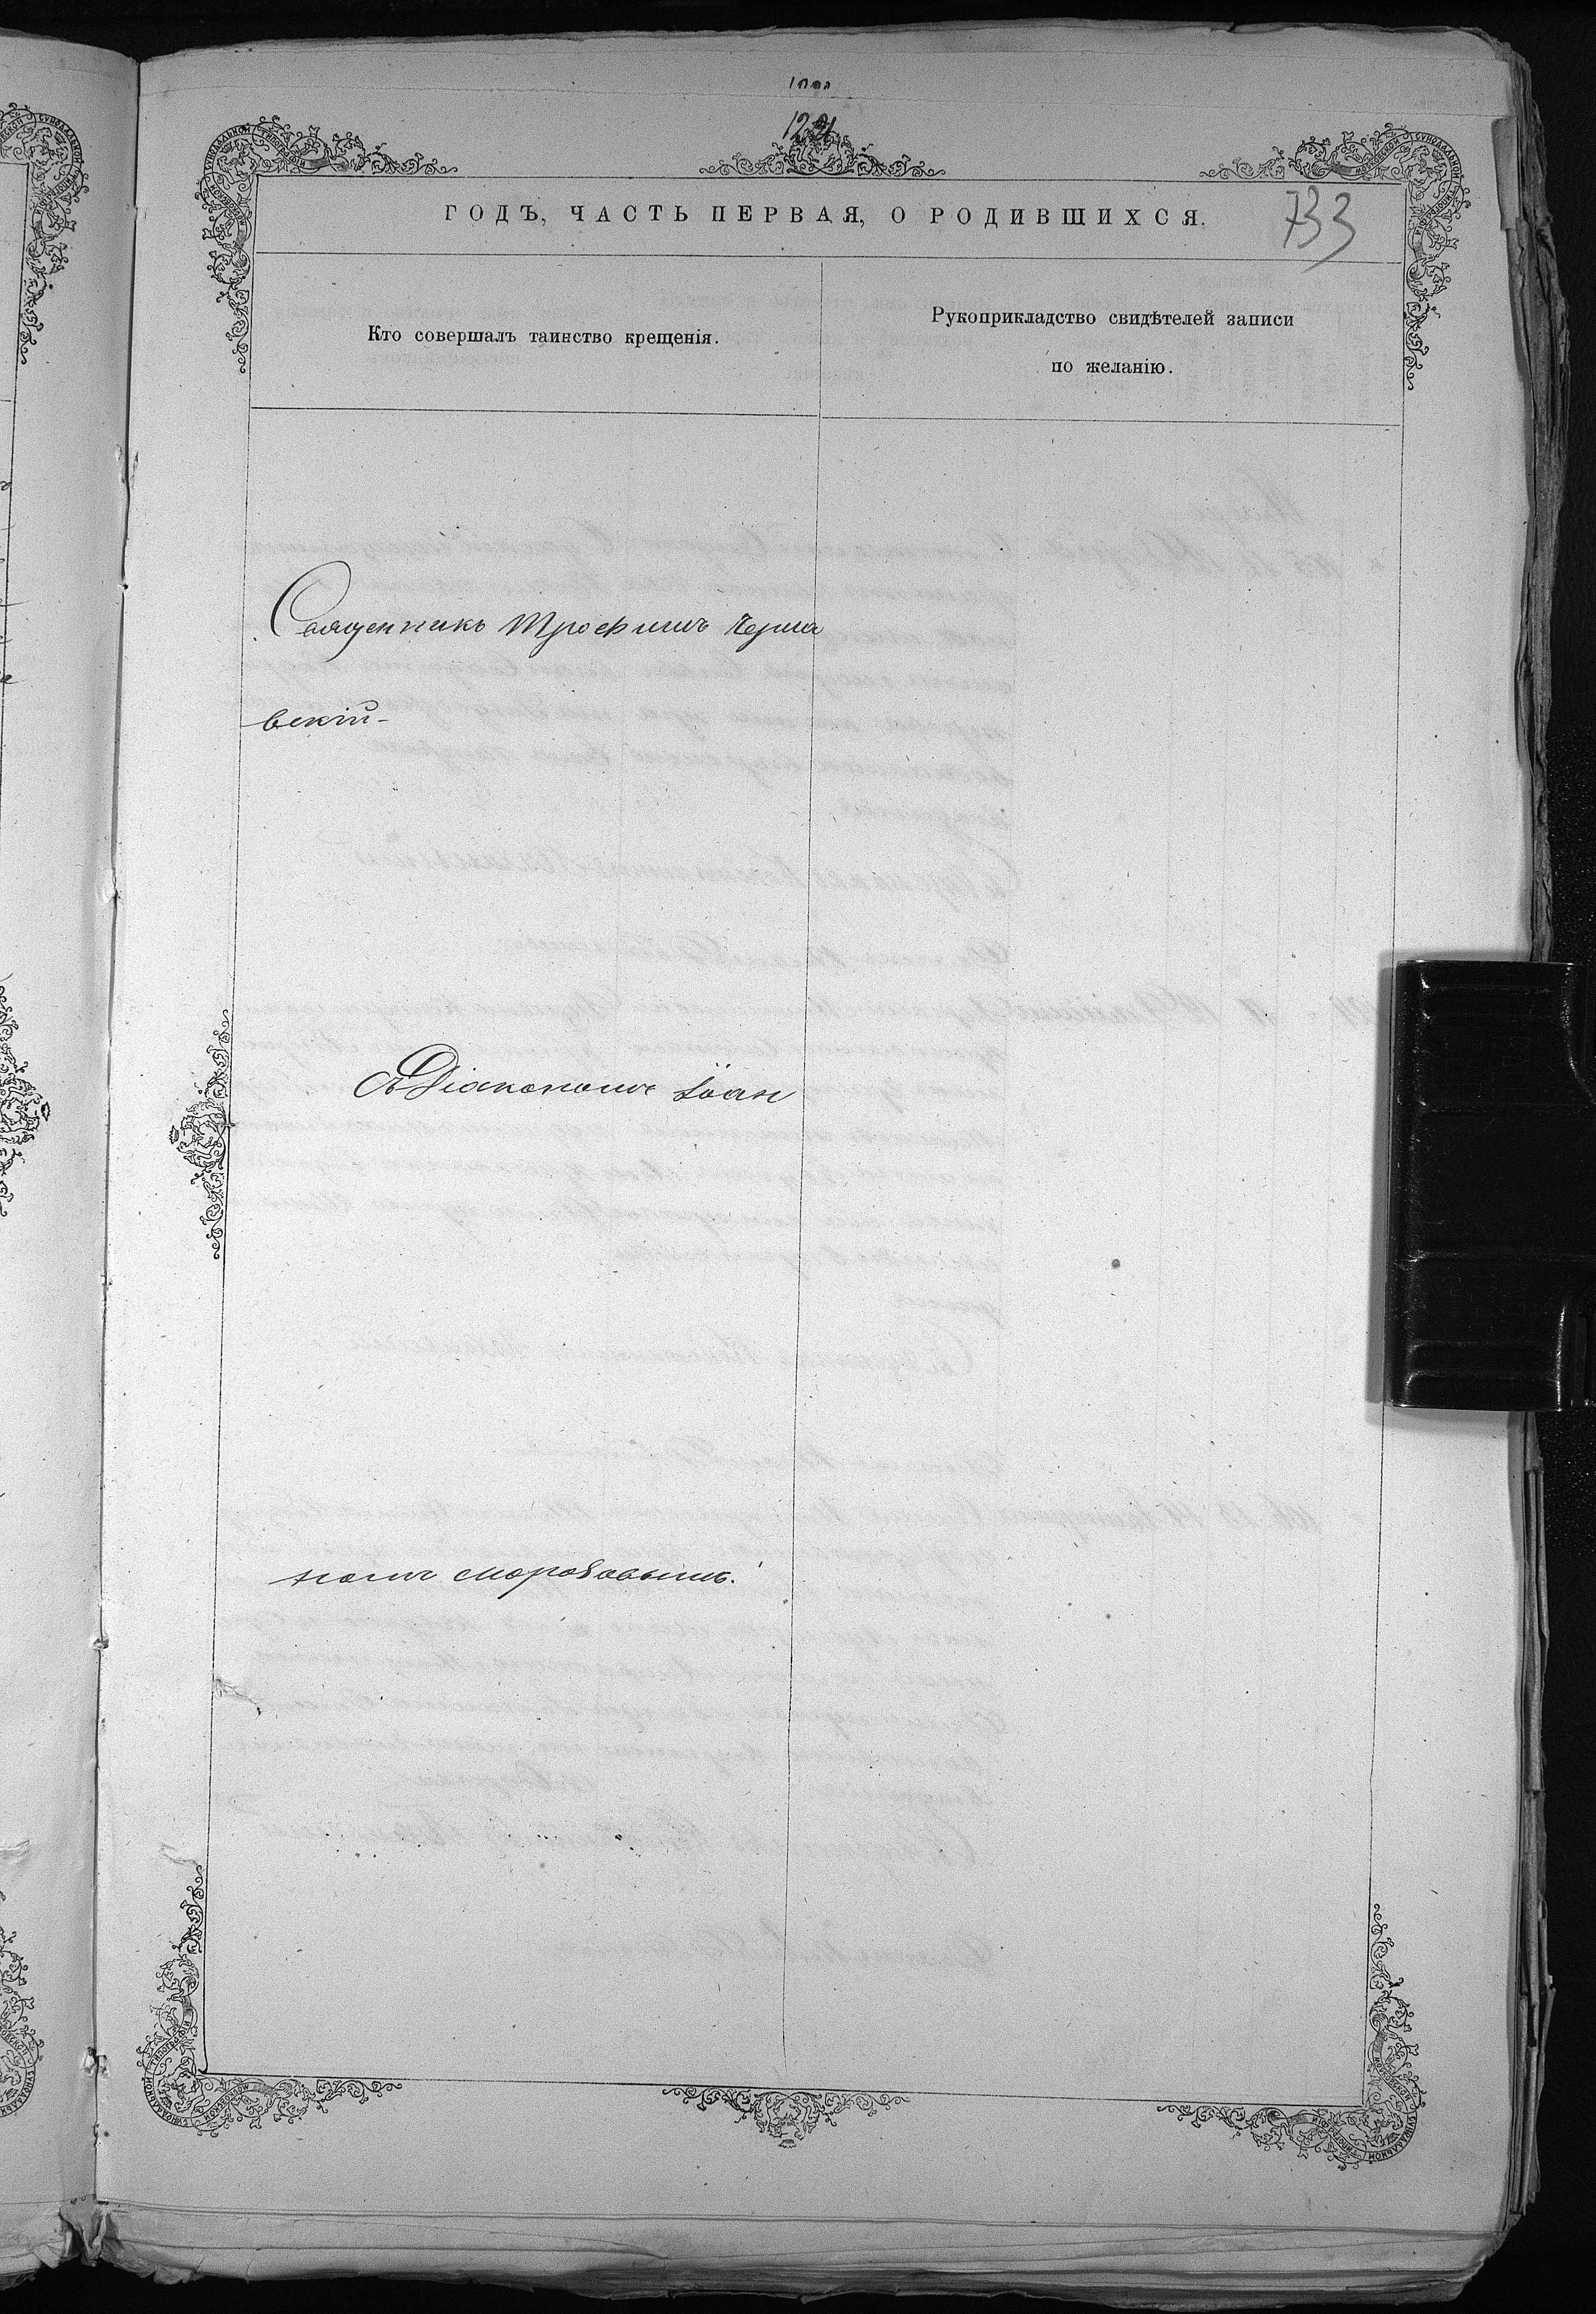 733
ГОДЪ, ЧАСТЬ ПЕРВАЯ, О РОДИВШИХСЯ.
Кто совершалъ таинство крещенія.
Рукоприкладство свидѣтелей записи
по желанію.
Священникъ Трофимъ Черня
вскій-
съ Діакономъ Іоан
номъ